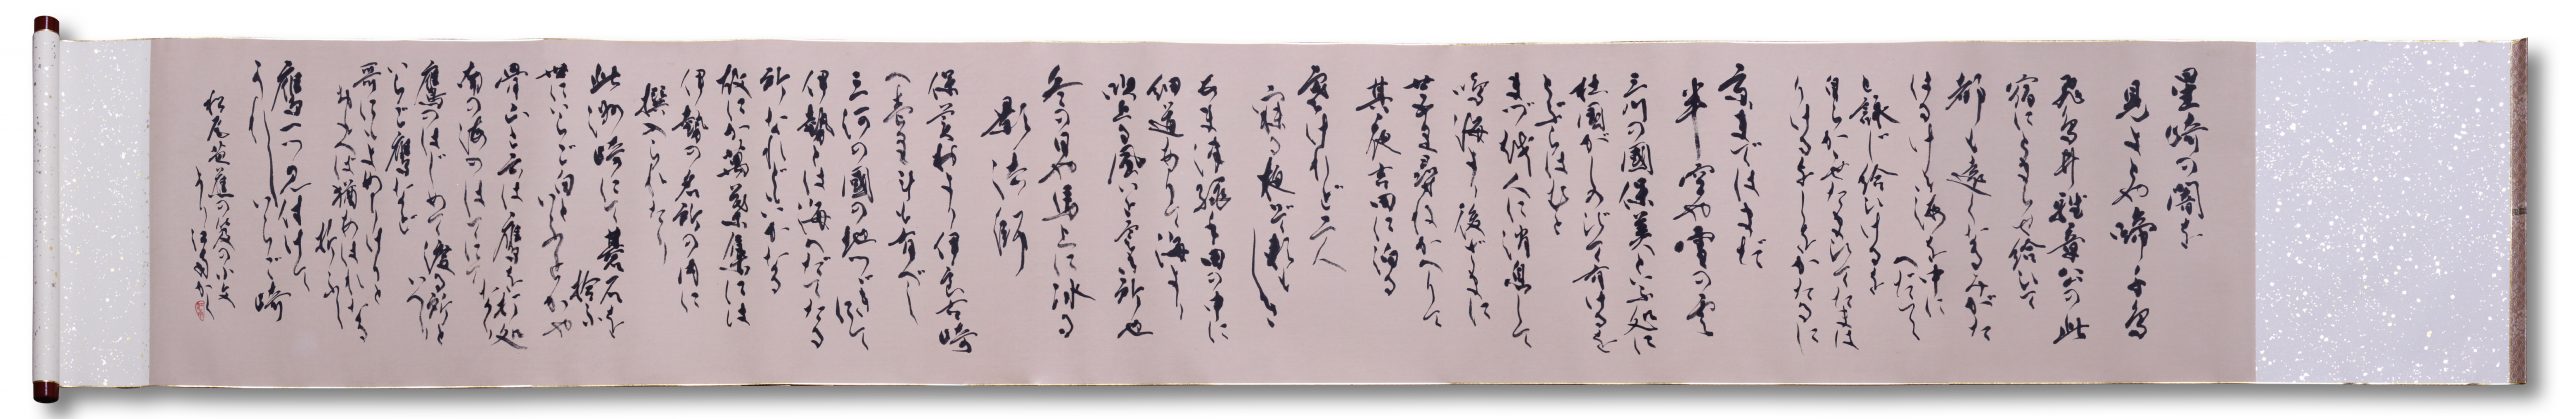 星崎の闇を
見よとや啼千鳥
飛鳥井雅章公の此
宿にとまらせ給ひて
都も遠くなるみがた
はるけき海を中に
へだてて
と詠じ給ひけるを
自らかかせたまひてたまは
りけるよしをかたるに
京まではまだ
半空や雪の雲
三川の國保美といふ処に
杜國がしのびて有けるを
とぶらはむと
まづ越人に消息して
鳴海より後ざまに
廿五里尋ねかへりて
其夜吉田に泊る
寒けれど二人
寝る夜ぞ頼もしき
あま津縄手田の中に
細道ありて海より
吹上る風いと寒き所也
冬の日や馬上に氷る
影法師
保美村より伊良古崎
へ壱里斗も有べし
三河の國の地つづきにて
伊勢とは海へだてたる
所なれどもいかなる
故にか萬葉集には
伊勢の名所の内に
撰入られたり
此洲崎にて碁石を
拾ふ
世にいらご白といふとかや
骨山と云は鷹を打処
南の海のはてにて
鷹のはじめて渡る所と
いへり
いらご鷹など
哥にもよめりけりと
おもへば猶あはれなる
折ふし
鷹一つ見付けて
うれしいらご崎
松尾芭蕉の笈の小文
より